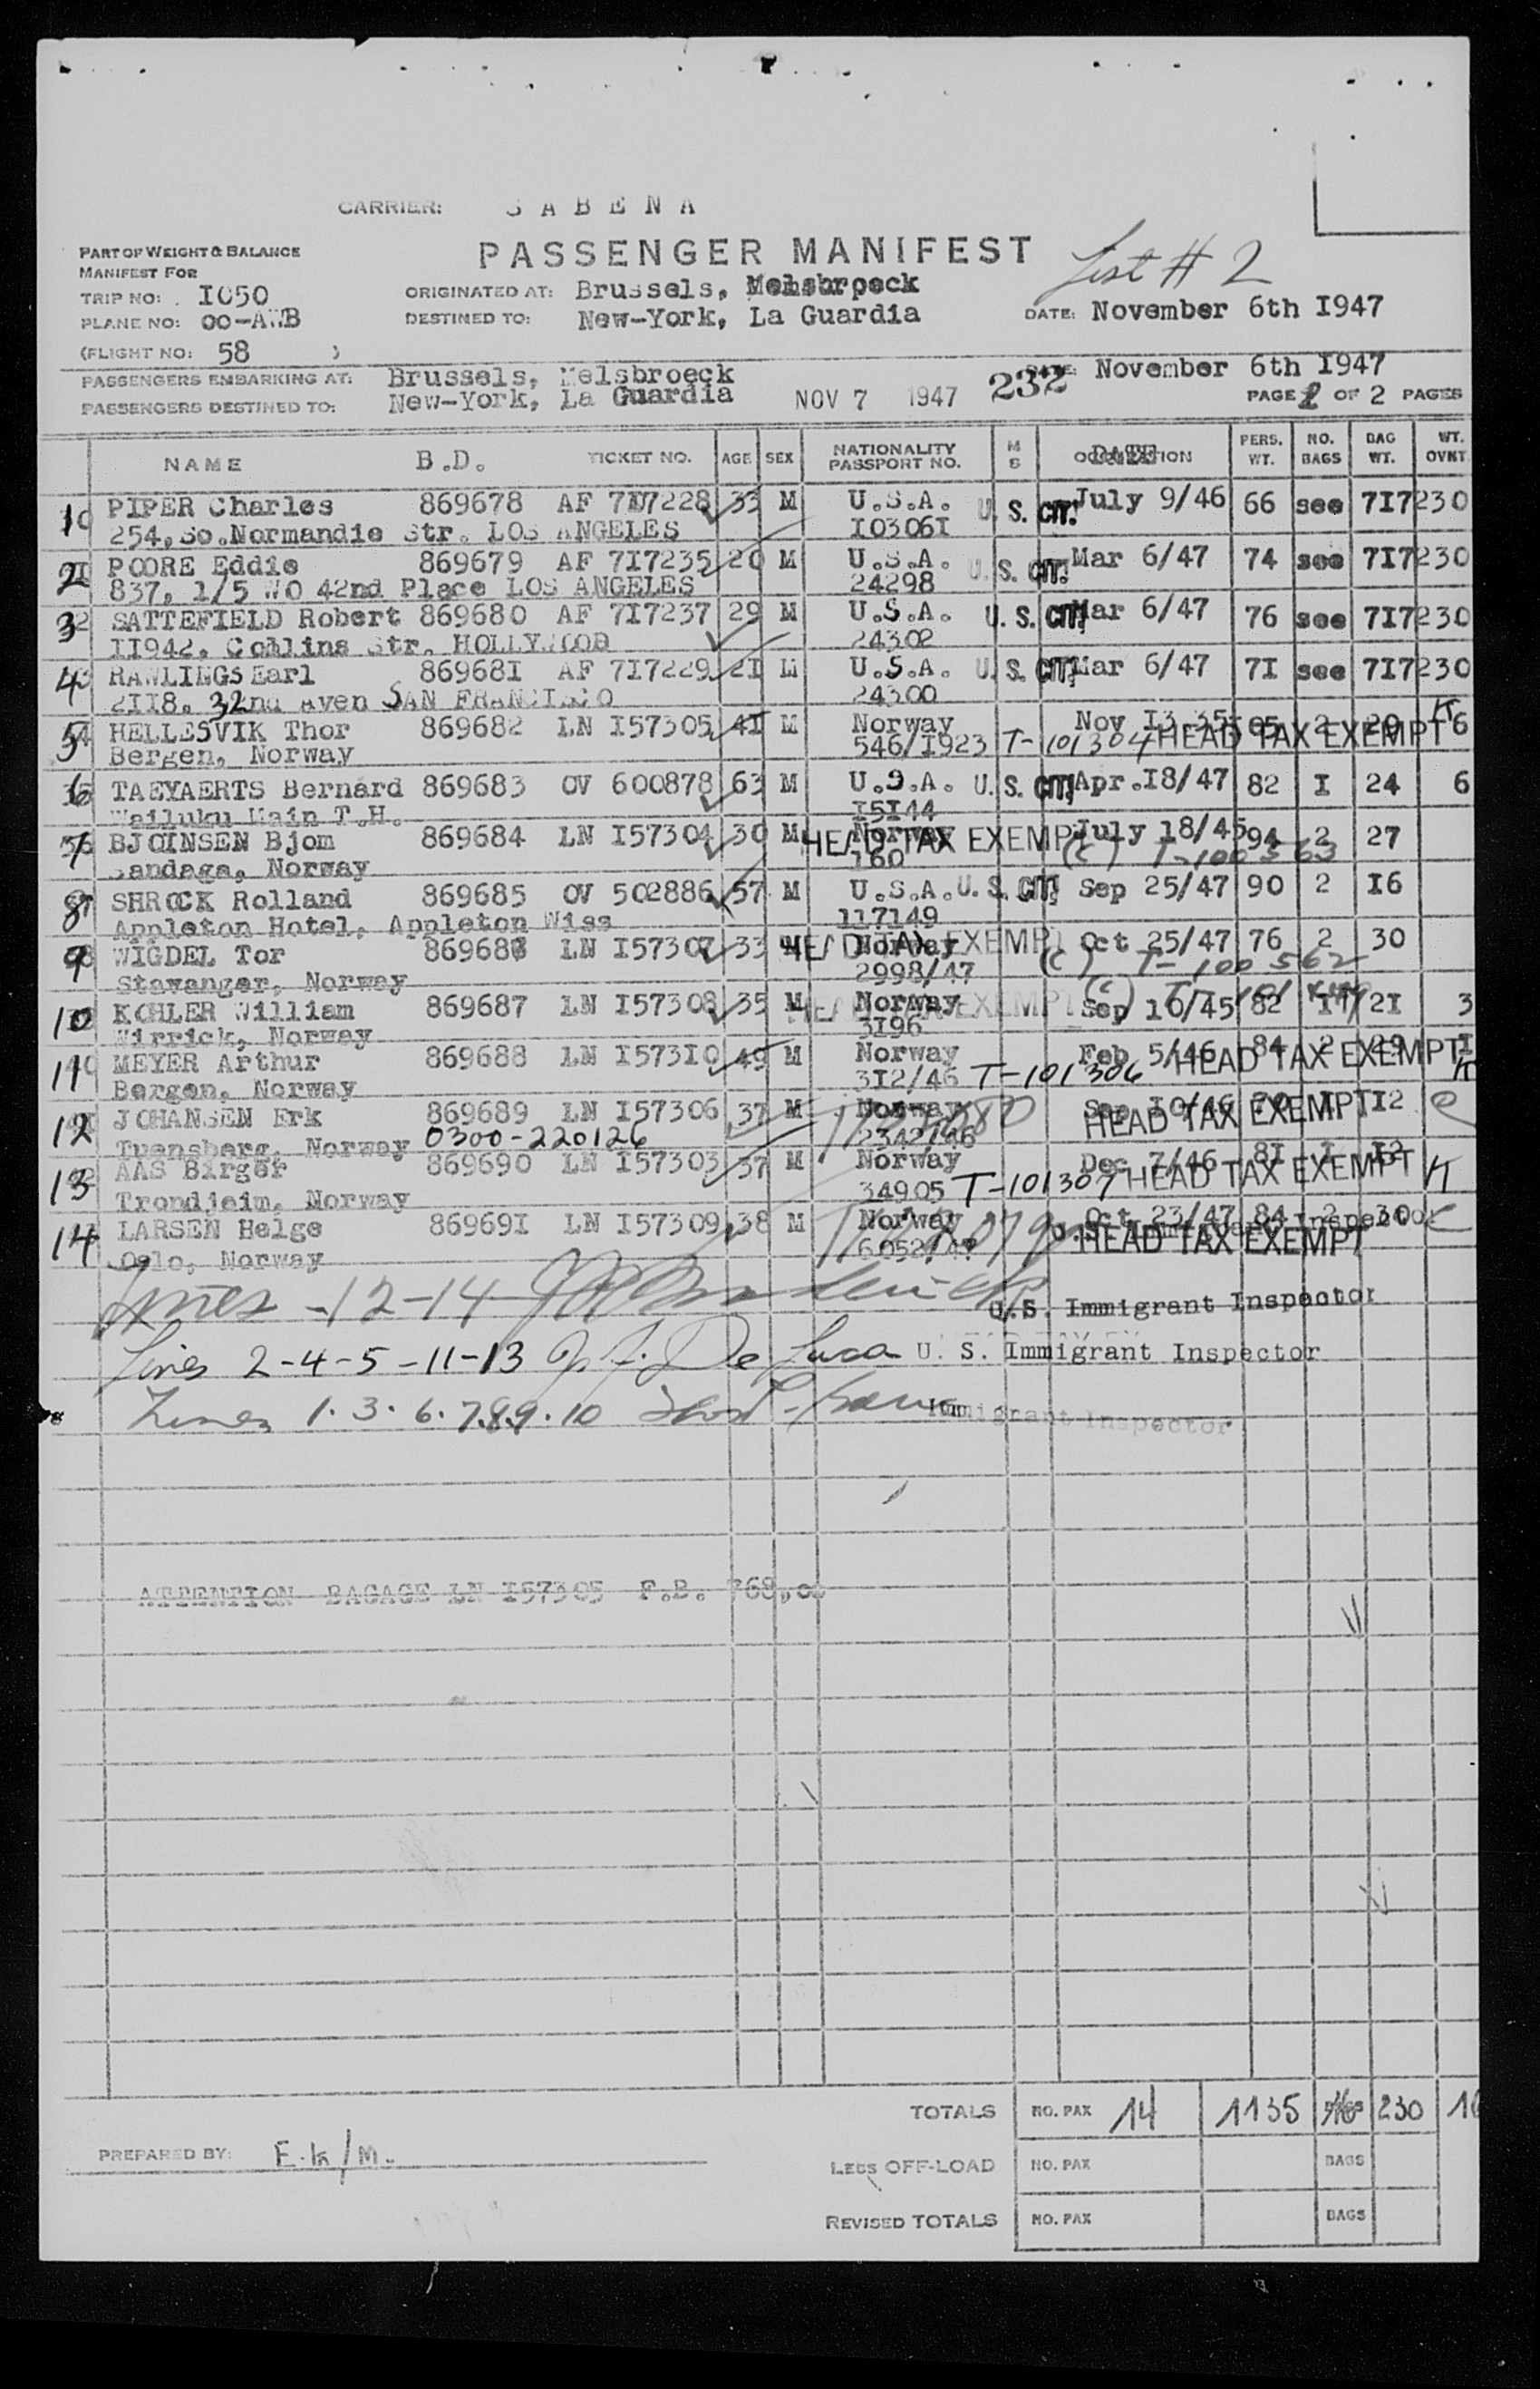 CARRIER: S A B E N A
PART OF WEIGHT & BALANCE
MANIFEST FOR
PASSENGER MANIFEST
List # 2
TRIP NO: I050
ORIGINATED AT: Brussels, Melsbroeck
PLANE NO: OO-AWB
DESTINED TO: New-York, La Guardia
DATE: November 6th I947
(FLIGHT NO: 58 )
PASSENGERS EMBARKING AT: Brussels, Melsbroeck
232
November 6th I947
PASSENGERS DESTINED TO: New-York, La Guardia
NOV 7 1947
PAGE 2 OF 2 PAGES
NAME B.D. TICKET NO. AGE SEX NATIONALITY PASSPORT NO. M S DATE PERS. WT. NO. BAGS BAG WT. WT. OVNT
1 PIPER Charles 869678 AF 7I7228 33 M U.S.A. U. S. CIT. July 9/46 66 see 7I7230
254, So.Normandie Str. LOS ANGELES I0306I
2 POORE Eddie 869679 AF 7I7235 20 M U.S.A. U. S. CIT. Mar 6/47 74 see 7I7230
837, 1/5 WO 42nd Place LOS ANGELES 24298
3 SATTEFIELD Robert 869680 AF 7I7237 29 M U.S.A. U. S. CIT. Mar 6/47 76 see 7I7230
II942, Collins Str. HOLLYWOOD 24302
4 RAWLINGS Earl 86968I AF 7I7229 2I M U.S.A. U. S. CIT. Mar 6/47 7I see 7I7230
2II8, 32nd Aven SAN FRANCISCO 24300
5 HELLESVIK Thor 869682 LN I57305 4I M Norway Nov I3 35 2 20 6
Bergen, Norway 546/I923 T-101304 HEAD TAX EXEMPT
6 TAEYAERTS Bernard 869683 OV 600878 63 M U.S.A. U. S. CIT. Apr.I8/47 82 I 24 6
Wailuku Main T.H. I5I44
7 BJOINSEN Bjom 869684 LN I57304 30 M Norway HEAD TAX EXEMPT July 18/45 94 2 27
Sandaga, Norway 160 (C) T-100563
8 SHROCK Rolland 869685 OV 502886 57 M U.S.A. U. S. CIT. Sep 25/47 90 2 I6
Appleton Hotel, Appleton Wiss 117149
9 WIGDEL Tor 869686 LN I57307 33 M Norway HEAD TAX EXEMPT Oct 25/47 76 2 30
Stavanger, Norway 2998/47 (C) T-100562
10 KOHLER William 869687 LN I57308 35 M Norway HEAD TAX EXEMPT Sep 10/45 82 I 2I 3
Wirrick, Norway 3I96
11 MEYER Arthur 869688 LN I573I0 49 M Norway Feb 5/46 84 2 29 I
Bergen, Norway 3I2/46 T-101306 HEAD TAX EXEMPT
12 JOHANSEN Erk 869689 LN I57306 37 M Norway Sep I0/46 I I2
Tuensberg, Norway 0300-220126 2342/46 HEAD TAX EXEMPT
13 AAS Birger 869690 LN I57303 37 M Norway Dec 7/46 8I I I2
Trondjeim, Norway 34905 T-101307 HEAD TAX EXEMPT
14 LARSEN Helge 86969I LN I57309 38 M Norway Oct 23/47 84 2 30
Oslo, Norway 6052/47 HEAD TAX EXEMPT
Lines - 12-14 U.S. Immigrant Inspector
Lines 2-4-5-11-13 De Luca U. S. Immigrant Inspector
Lines 1.3.6.7.8.9.10 Immigrant Inspector
ATTENTION BAGAGE LN I57305 F.B. 768,00
TOTALS NO. PAX 14 1135 230
PREPARED BY: E.K/M.
LESS OFF-LOAD NO. PAX BAGS
REVISED TOTALS NO. PAX BAGS